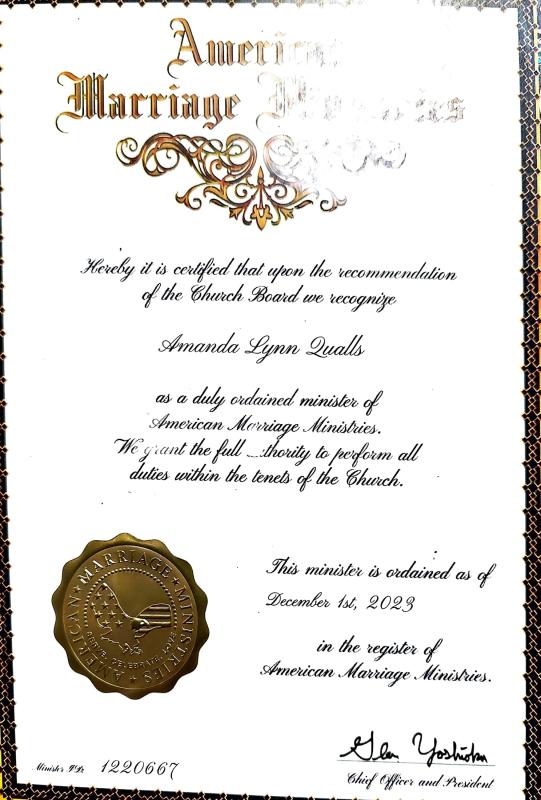 American
Marriage Ministries
Hereby it is certified that upon the recommendation
of the Church Board we recognize
Amanda Lynn Qualls
as a duly ordained minister of
American Marriage Ministries.
We grant the full ...thority to perform all
duties within the tenets of the Church.
This minister is ordained as of
December 1st, 2023
in the register of
American Marriage Ministries.
AMERICAN ★ MARRIAGE ★ MINISTRIES ★
CELEBRATE LOVE
Minister ID: 1220667
Glen Yoshioka
Chief Officer and President